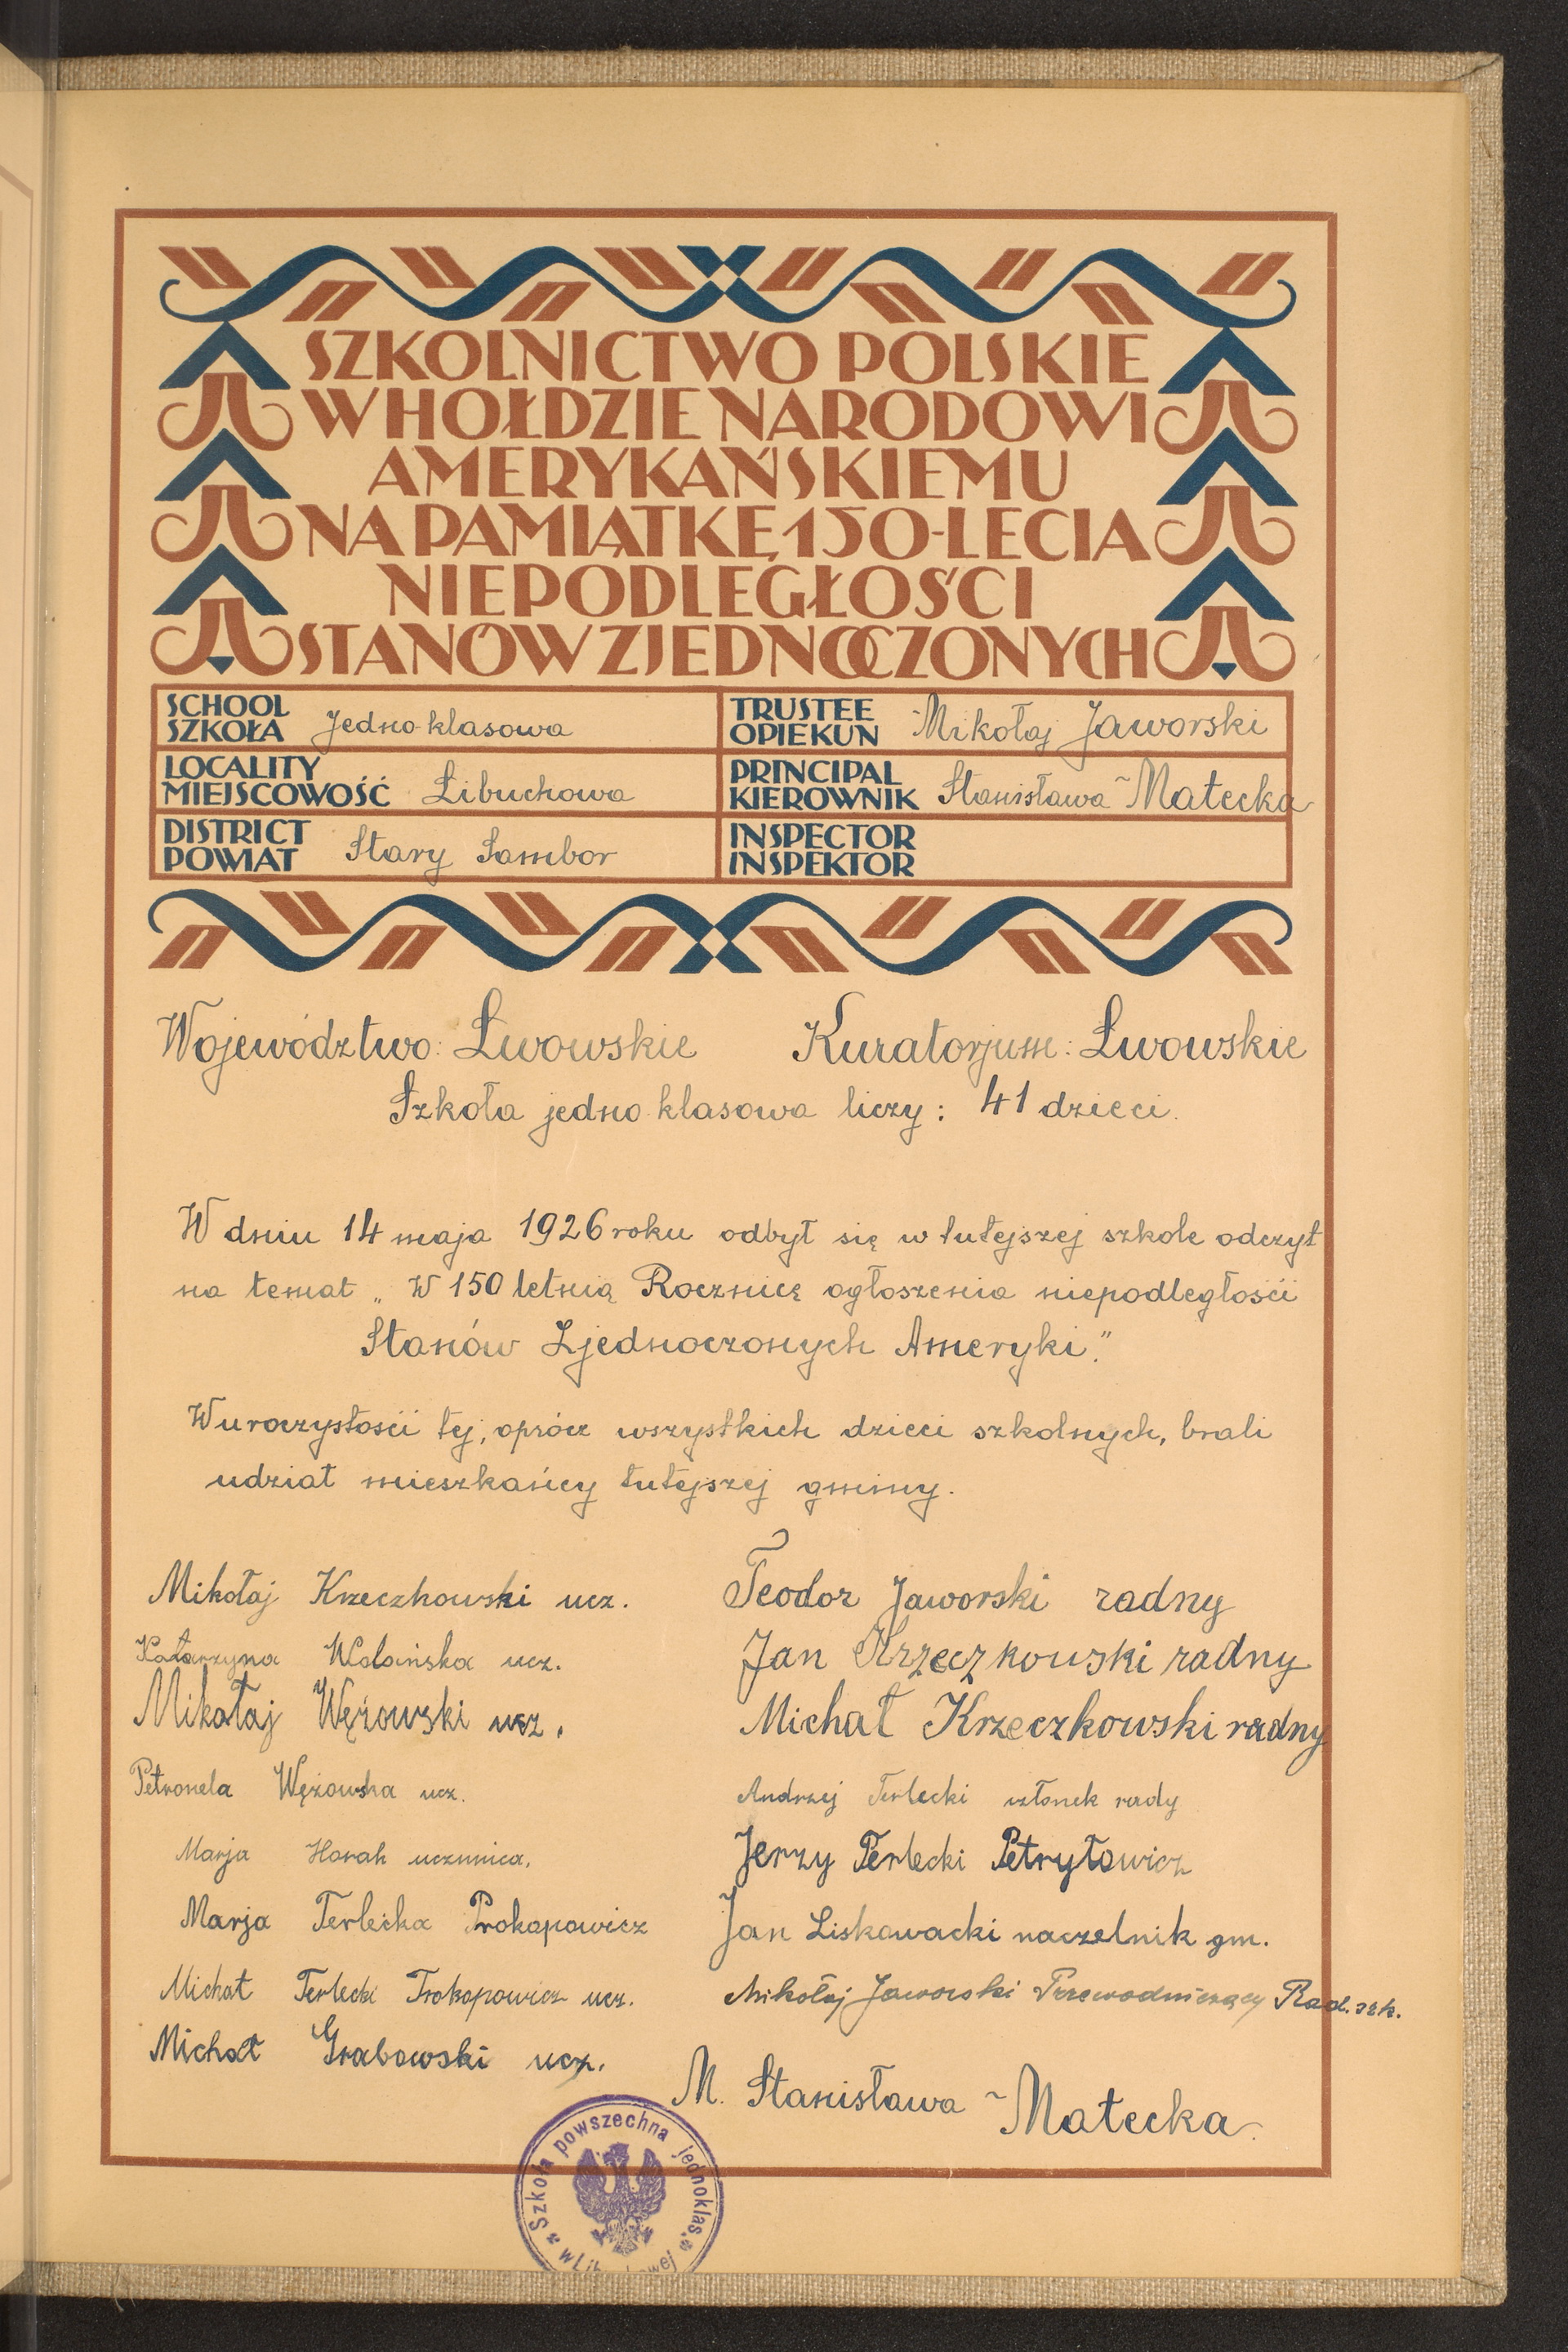 SZKOLNICTWO POLSKIE
W HOŁDZIE NARODOWI
AMERYKAŃSKIEMU
NA PAMIĄTKĘ 150-LECIA
NIEPODLEGŁOŚCI
STANÓW ZJEDNOCZONYCH
SCHOOL
SZKOŁA Jedno klasowa
TRUSTEE
OPIEKUN Mikołaj Jaworski
LOCALITY
MIEJSCOWOŚĆ Libuchowa
PRINCIPAL
KIEROWNIK Stanisława Matecka
DISTRICT
POWIAT Stary Sambor
INSPECTOR
INSPEKTOR
Województwo: Lwowskie Kuratorjum: Lwowskie
Szkoła jedno klasowa liczy: 41 dzieci.
W dniu 14 maja 1926 roku odbył się w tutejszej szkole odczyt
na temat „W 150 letnią Rocznicę ogłoszenia niepodległości
Stanów Zjednoczonych Ameryki."
W uroczystości tej, oprócz wszystkich dzieci szkolnych, brali
udział mieszkańcy tutejszej gminy.
Mikołaj Krzeczkowski ucz.
Katarzyna Wolańska ucz.
Mikołaj Wężowski ucz.
Petronela Wężowska ucz.
Marja Horah uczennica.
Marja Terlecka Prokopowicz
Michał Terlecki Prokopowicz ucz.
Michał Grabowski ucz.
Teodor Jaworski radny
Jan Krzeczkowski radny
Michał Krzeczkowski radny
Andrzej Terlecki członek rady
Jerzy Terlecki Petryłowicz
Jan Liskowacki naczelnik gm.
Mikołaj Jaworski Przewodniczący Rad. szk.
M. Stanisława Matecka
Szkoła powszechna jednoklas.